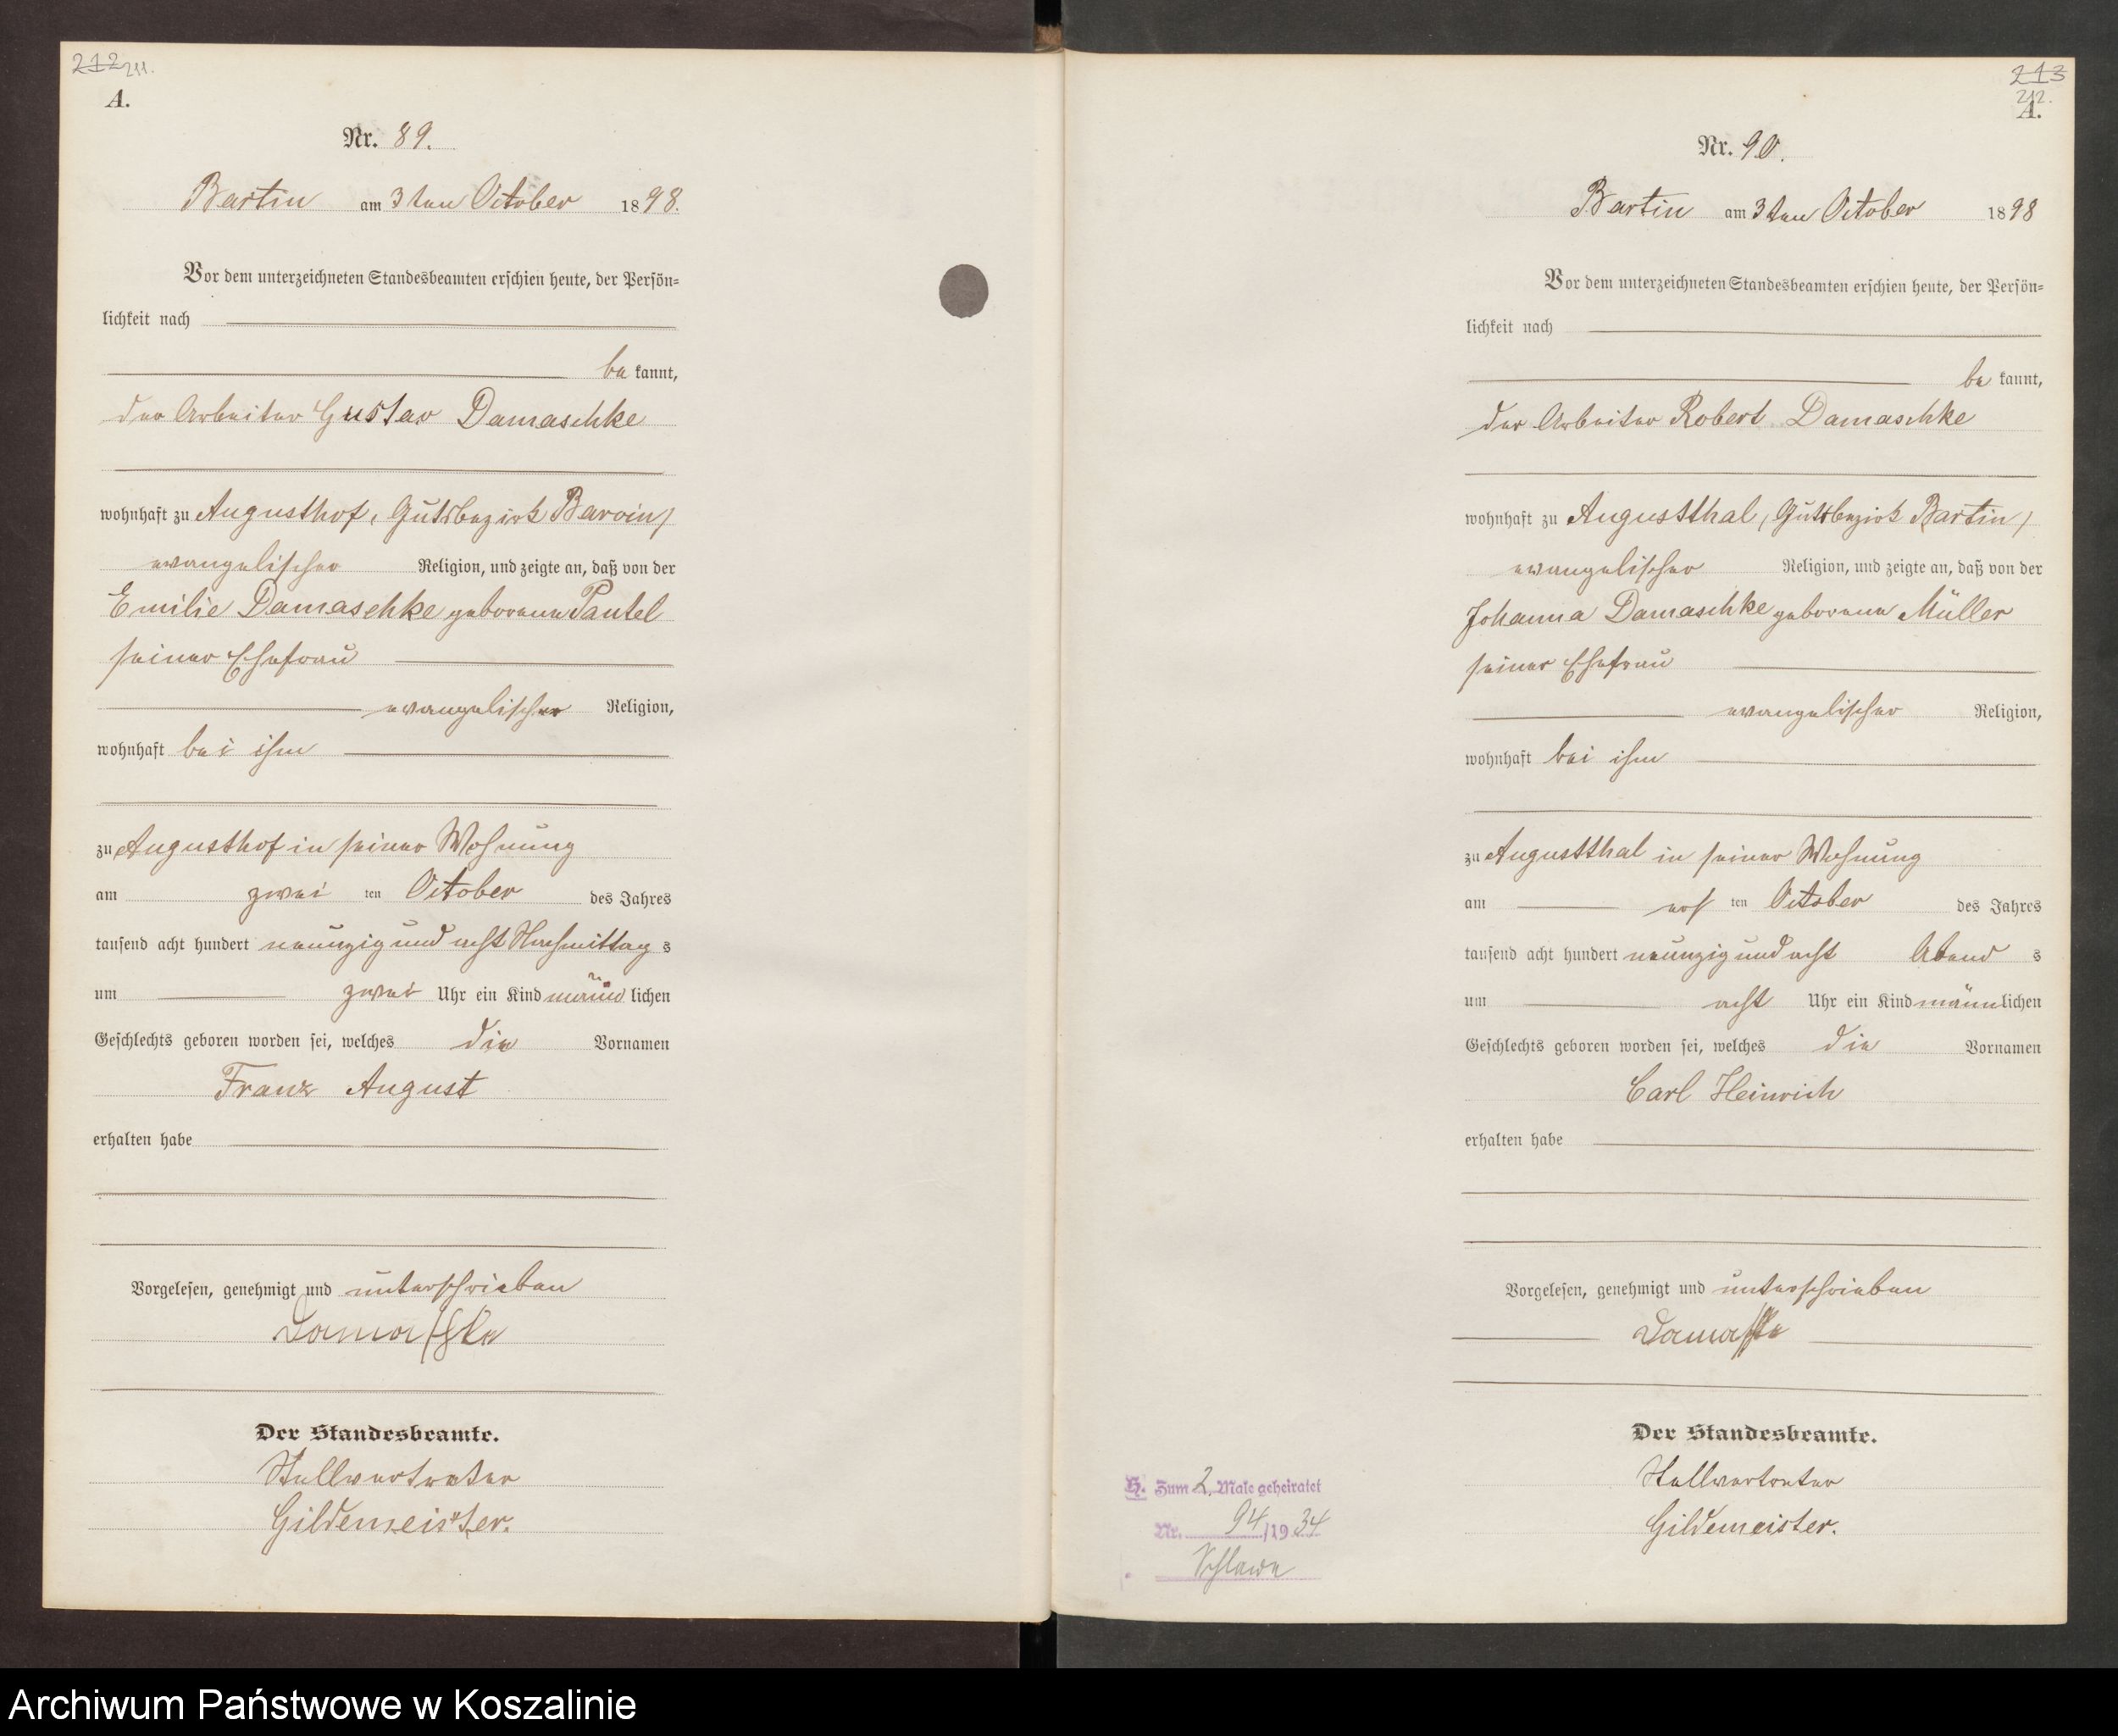 212 211.
A.
Nr. 89.
Bartin am 3ten October 1898.
Vor dem unterzeichneten Standesbeamten erschien heute, der Persön=
lichkeit nach
be kannt,
der Arbeiter Gustav Damaschke
wohnhaft zu Augusthof, Gutsbezirk Barvin,
evangelischer Religion, und zeigte an, daß von der
Emilie Damaschke geborene Pantel
seiner Ehefrau
evangelischer Religion,
wohnhaft bei ihm
zu Augusthof in seiner Wohnung
am zwei ten October des Jahres
tausend acht hundert neunzig und acht Nachmittag s
um zwei Uhr ein Kind männ lichen
Geschlechts geboren worden sei, welches die Vornamen
Franz August
erhalten habe
Vorgelesen, genehmigt und unterschrieben
Damaschke
Der Standesbeamte.
Stellvertreter
Gildemeister.
213
212.
A.
Nr. 90.
Bartin am 3ten October 1898
Vor dem unterzeichneten Standesbeamten erschien heute, der Persön=
lichkeit nach
be kannt,
der Arbeiter Robert Damaschke
wohnhaft zu Augustthal, Gutsbezirk Bartin,
evangelischer Religion, und zeigte an, daß von der
Johanna Damaschke geborene Müller
seiner Ehefrau
evangelischer Religion,
wohnhaft bei ihm
zu Augustthal in seiner Wohnung
am ers ten October des Jahres
tausend acht hundert neunzig und acht Abend s
um acht Uhr ein Kind männlichen
Geschlechts geboren worden sei, welches die Vornamen
Carl Heinrich
erhalten habe
Vorgelesen, genehmigt und unterschrieben
Damaschke
Der Standesbeamte.
Stellvertreter
Gildemeister.
H. Zum 2. Male geheiratet
Nr. 94/1934
Schlawe
Archiwum Państwowe w Koszalinie